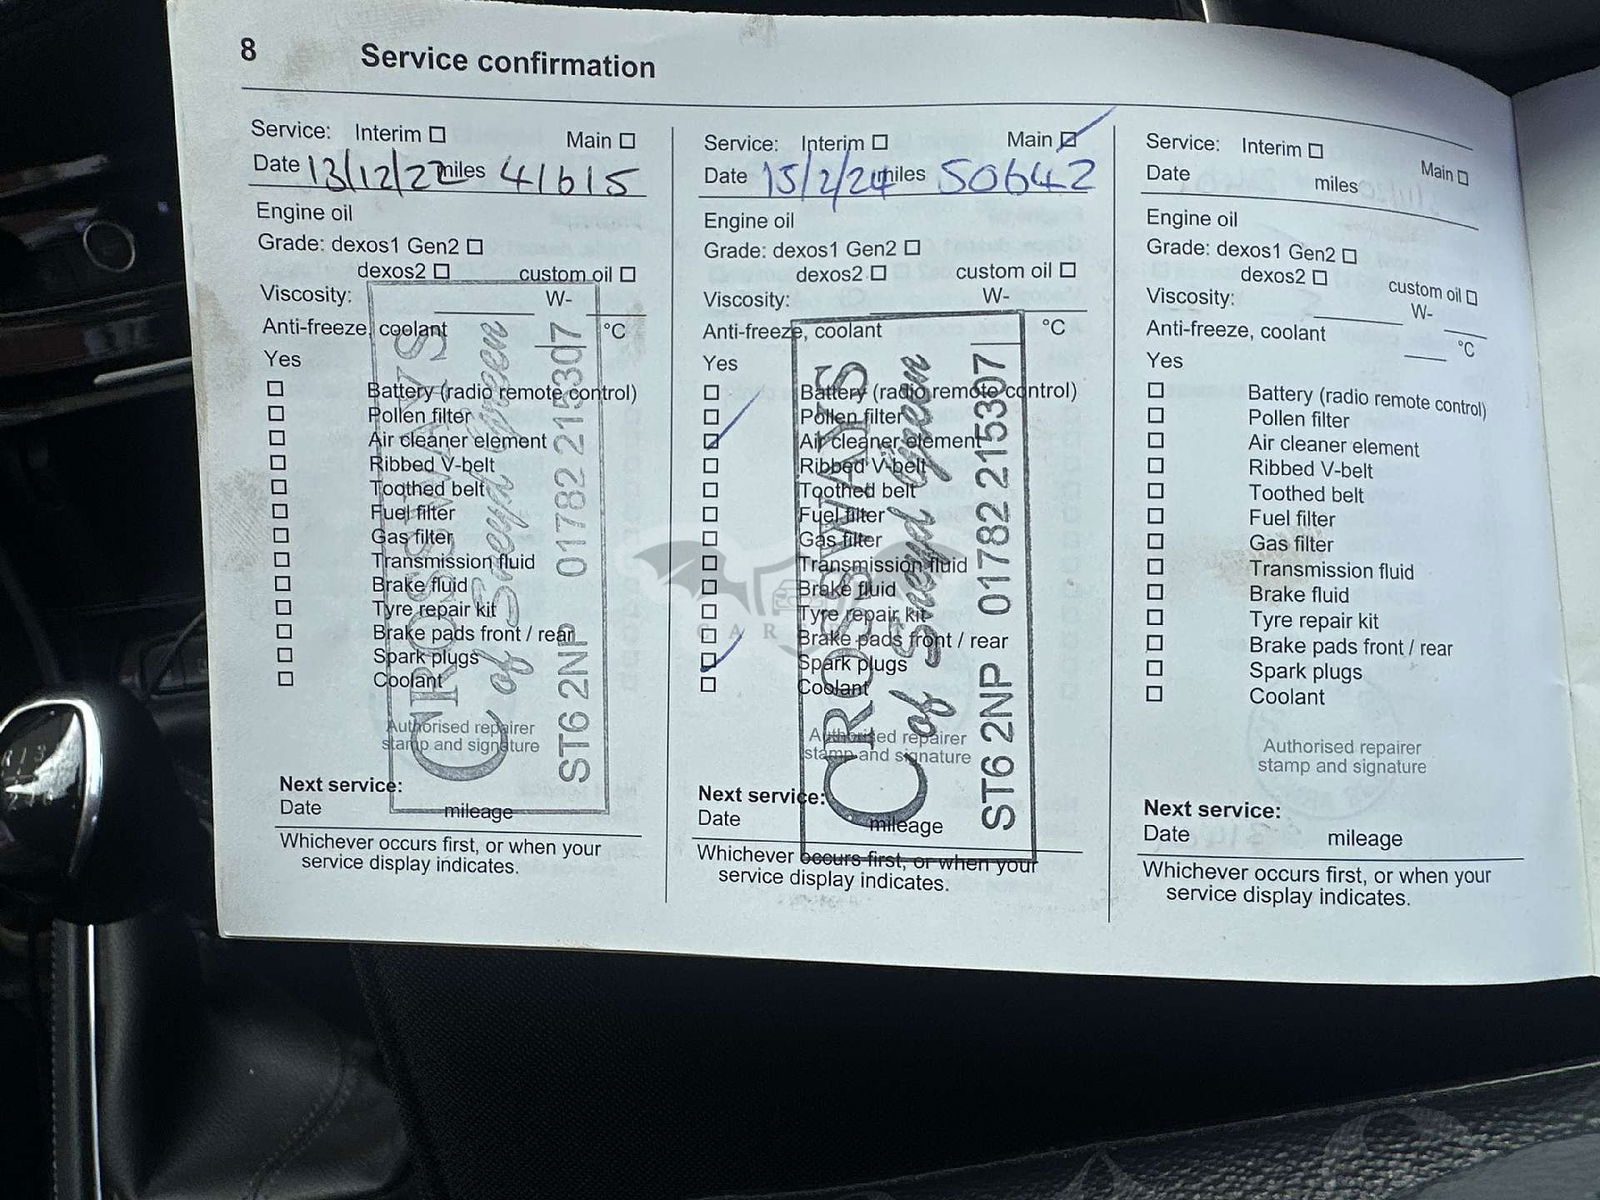 8 Service confirmation
Service: Interim ☐ Main ☐
Date 13/12/22 miles 41615
Engine oil
Grade: dexos1 Gen2 ☐
dexos2 ☐ custom oil ☐
Viscosity: W-
Anti-freeze, coolant °C
Yes
☐ Battery (radio remote control)
☐ Pollen filter
☐ Air cleaner element
☐ Ribbed V-belt
☐ Toothed belt
☐ Fuel filter
☐ Gas filter
☐ Transmission fluid
☐ Brake fluid
☐ Tyre repair kit
☐ Brake pads front / rear
☐ Spark plugs
☐ Coolant
Authorised repairer
stamp and signature
CROSSWAYS
of Sneyd Green
ST6 2NP 01782 215307
Next service:
Date mileage
Whichever occurs first, or when your
service display indicates.
Service: Interim ☐ Main ☑
Date 15/2/24 miles 50642
Engine oil
Grade: dexos1 Gen2 ☐
dexos2 ☐ custom oil ☐
Viscosity: W-
Anti-freeze, coolant °C
Yes
☐ Battery (radio remote control)
☐ Pollen filter
☑ Air cleaner element
☐ Ribbed V-belt
☐ Toothed belt
☐ Fuel filter
☐ Gas filter
☐ Transmission fluid
☐ Brake fluid
☐ Tyre repair kit
☐ Brake pads front / rear
☑ Spark plugs
☐ Coolant
Authorised repairer
stamp and signature
CROSSWAYS
of Sneyd Green
ST6 2NP 01782 215307
Next service:
Date mileage
Whichever occurs first, or when your
service display indicates.
Service: Interim ☐ Main ☐
Date miles
Engine oil
Grade: dexos1 Gen2 ☐
dexos2 ☐ custom oil ☐
Viscosity: W-
Anti-freeze, coolant °C
Yes
☐ Battery (radio remote control)
☐ Pollen filter
☐ Air cleaner element
☐ Ribbed V-belt
☐ Toothed belt
☐ Fuel filter
☐ Gas filter
☐ Transmission fluid
☐ Brake fluid
☐ Tyre repair kit
☐ Brake pads front / rear
☐ Spark plugs
☐ Coolant
Authorised repairer
stamp and signature
Next service:
Date mileage
Whichever occurs first, or when your
service display indicates.